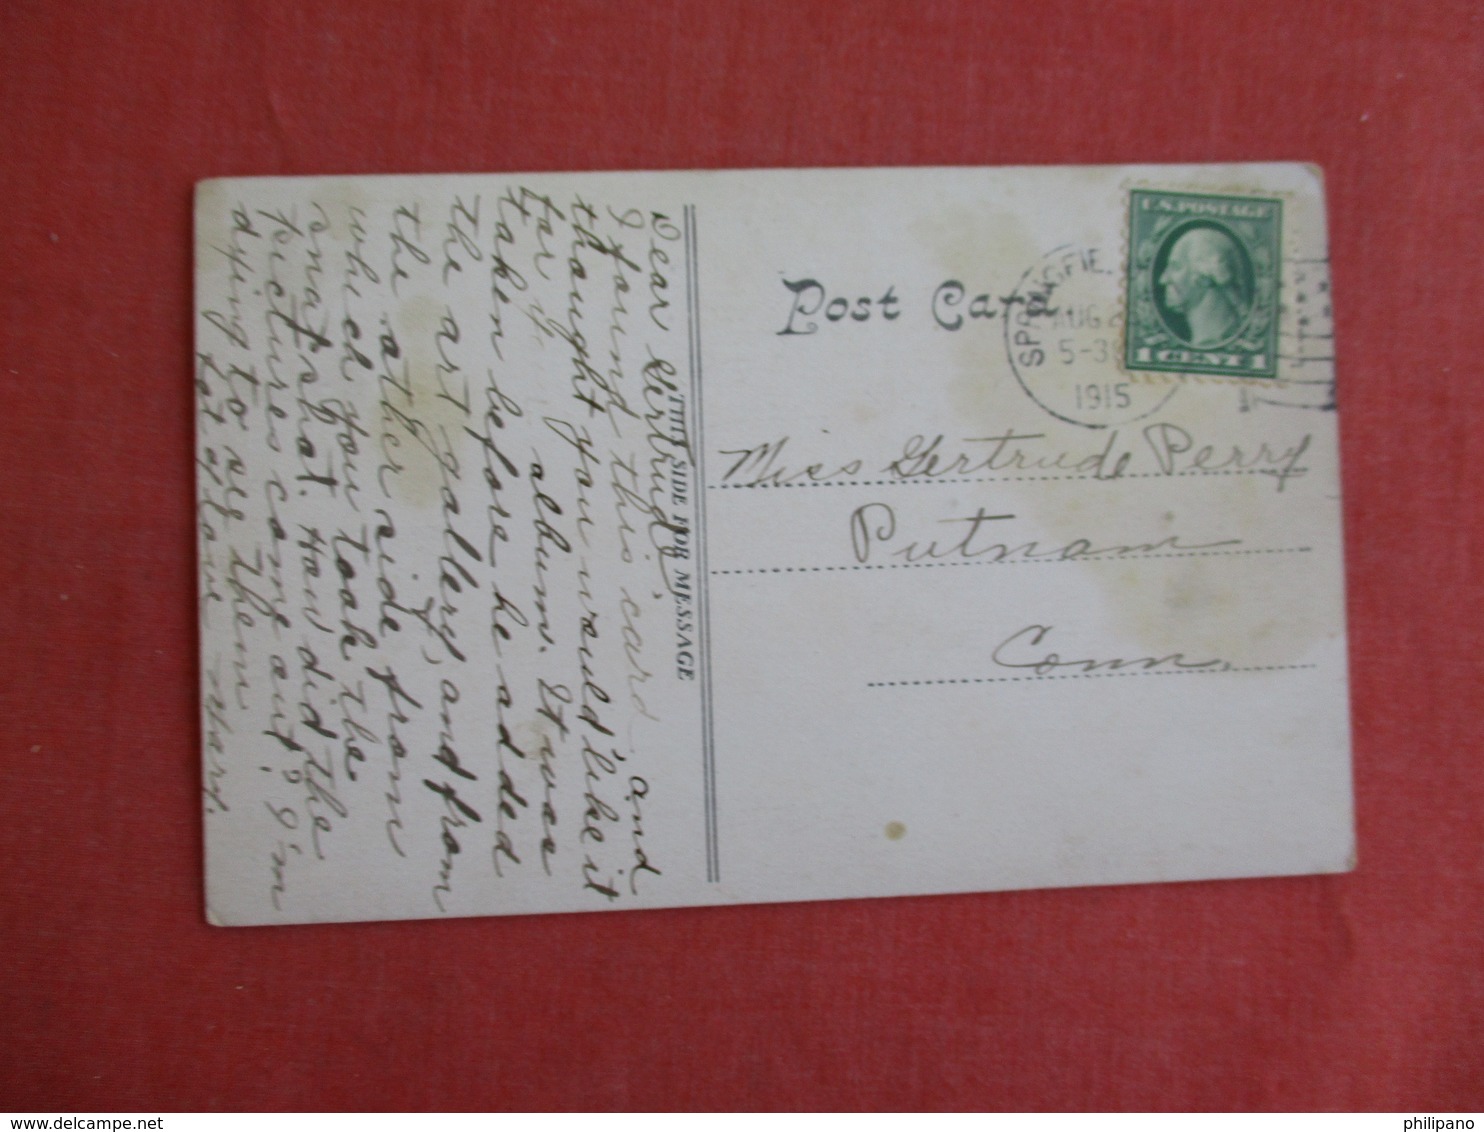 Dear Gertrude,
I found this card and
thought you would like it
for y album. It was
taken before he added
the art gallery, and from
the other side from
which you took the
snapshot. How did the
pictures come out? I'm
dying to see them
Lot of love Mary.
THIS SIDE FOR MESSAGE
Post Card
SPRINGFIE
AUG
5-3
1915
U.S. POSTAGE
1 CENT 1
Miss Gertrude Perry
Putnam
Conn.
delcampe.net
philipano